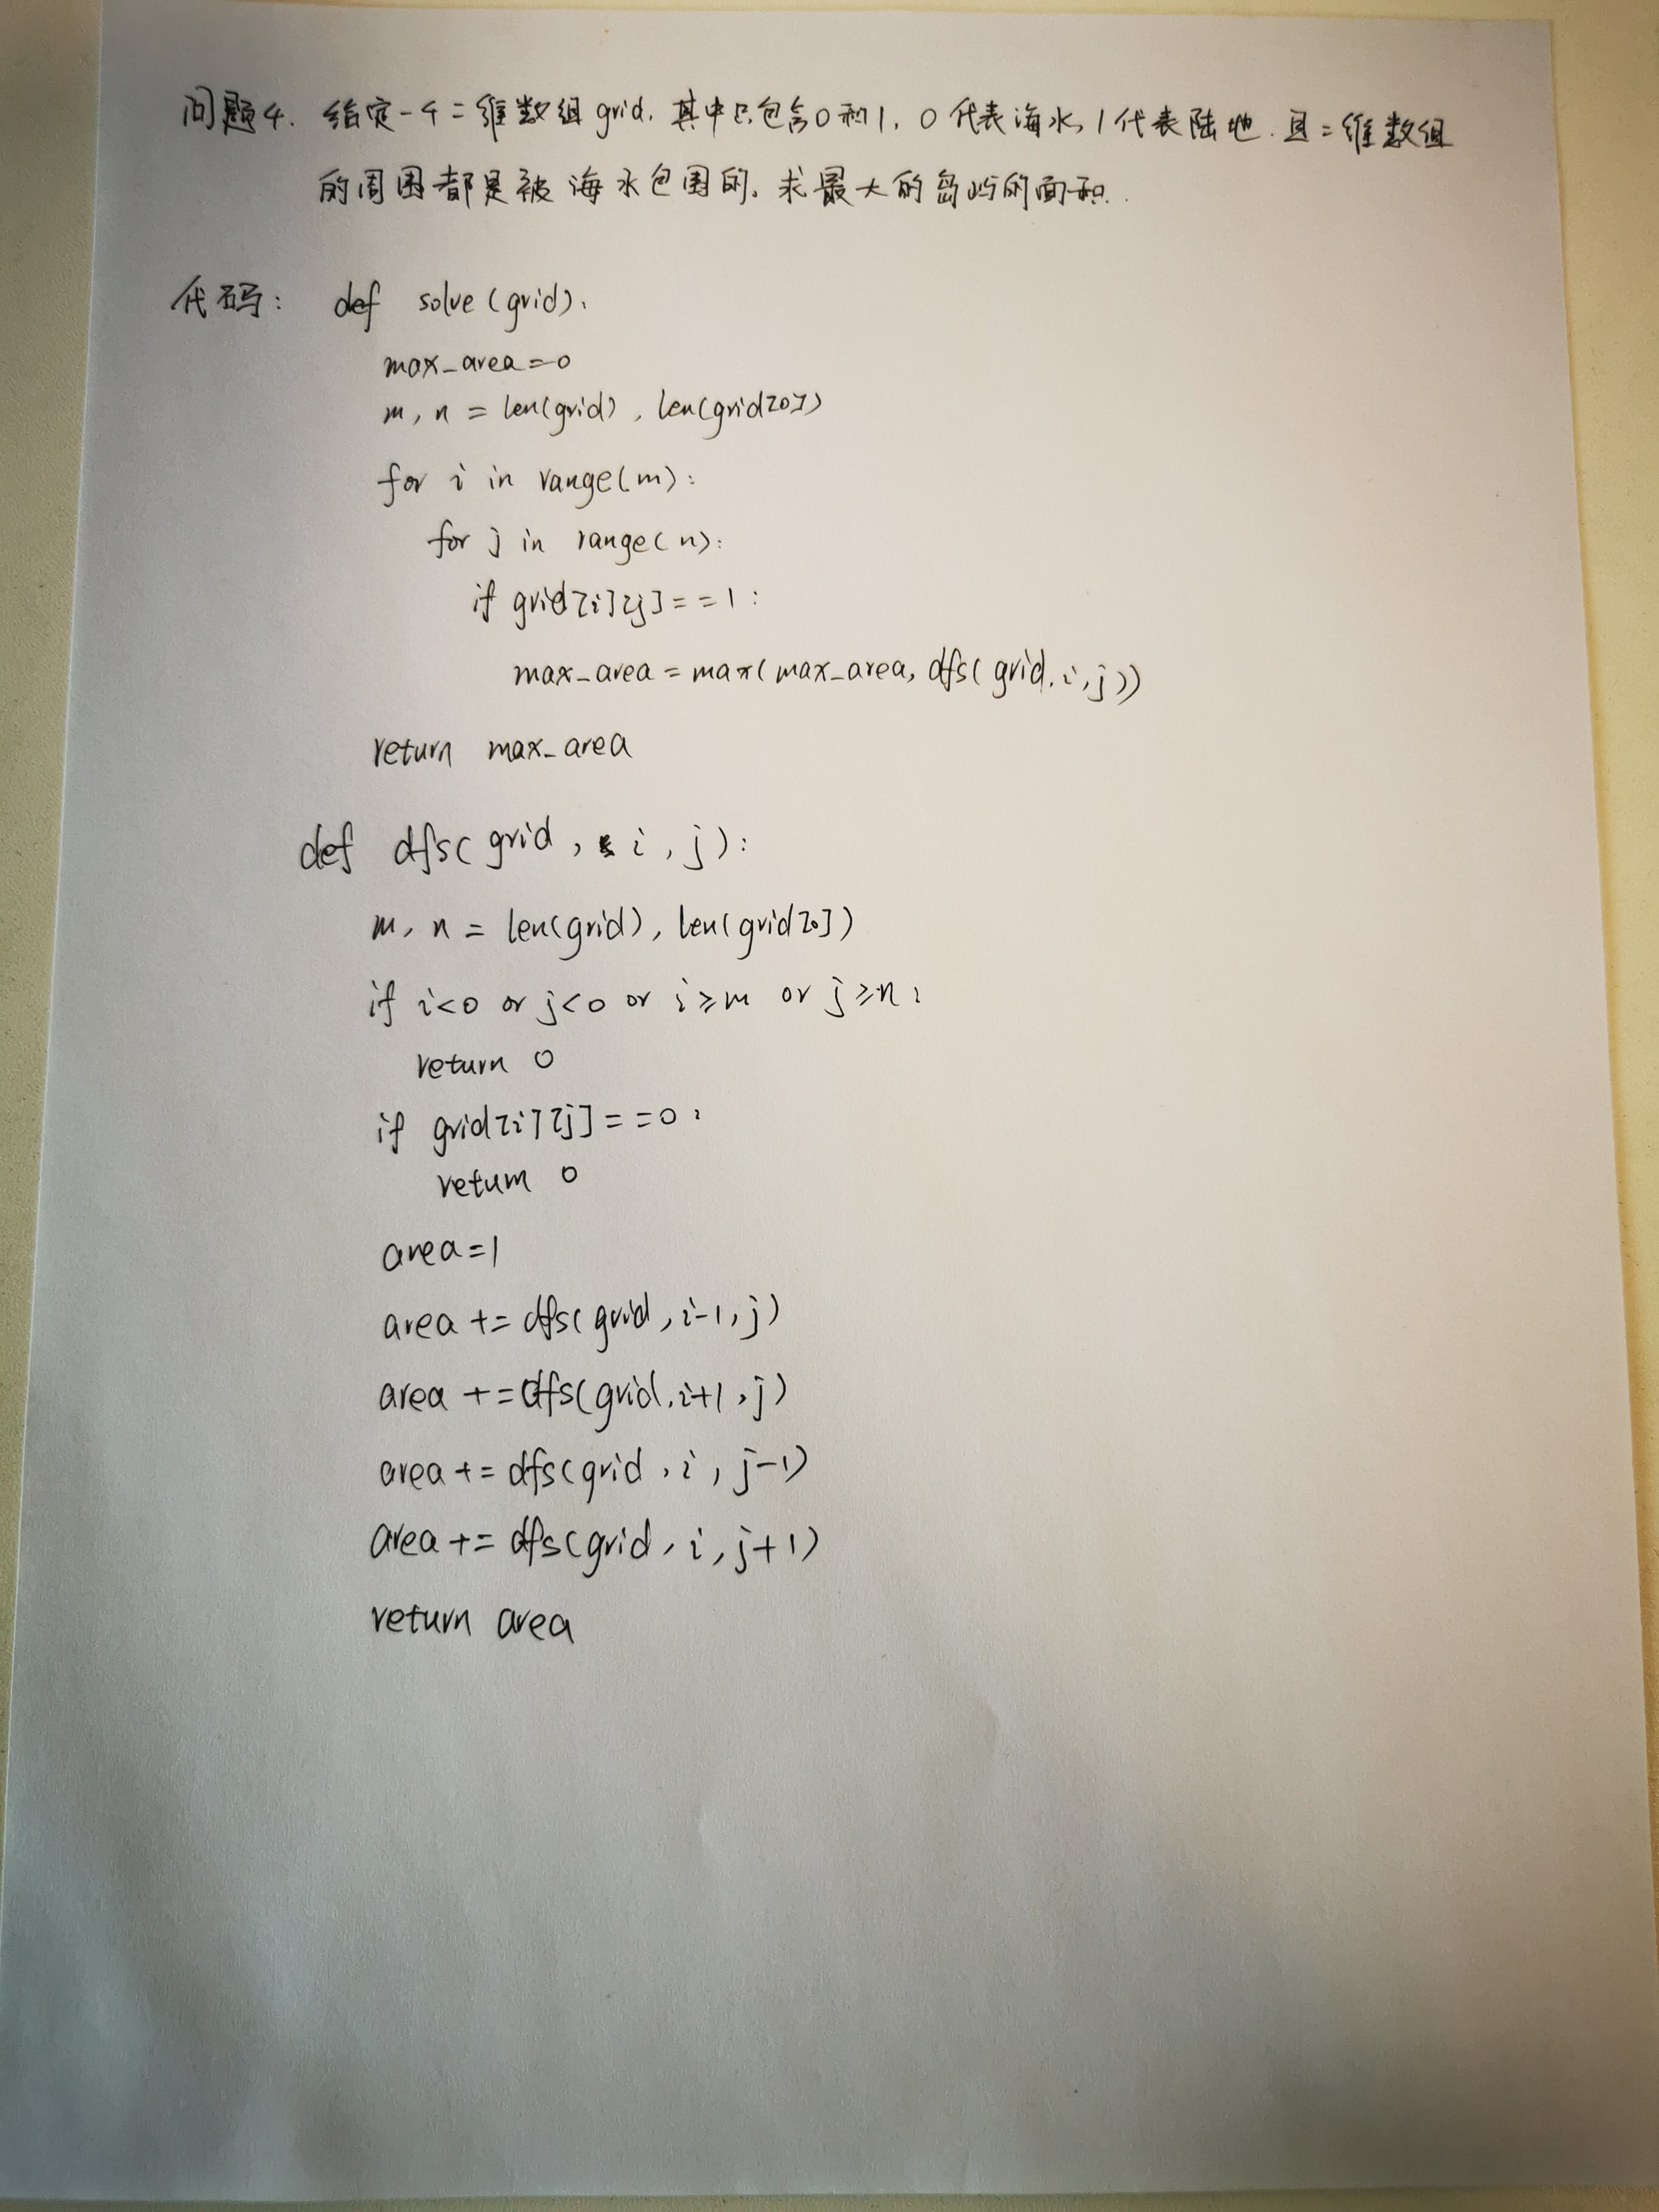 问题4. 给定一个二维数组grid, 其中只包含0和1, 0代表海水, 1代表陆地. 且二维数组
的周围都是被海水包围的. 求最大的岛屿的面积.
代码: def solve(grid):
max_area=0
m, n = len(grid), len(grid[0])
for i in range(m):
for j in range(n):
if grid[i][j]==1:
max_area = max(max_area, dfs(grid, i, j))
return max_area
def dfs(grid, i, j):
m, n = len(grid), len(grid[0])
if i<0 or j<0 or i≥m or j≥n:
return 0
if grid[i][j]==0:
return 0
area=1
area += dfs(grid, i-1, j)
area += dfs(grid, i+1, j)
area += dfs(grid, i, j-1)
area += dfs(grid, i, j+1)
return area